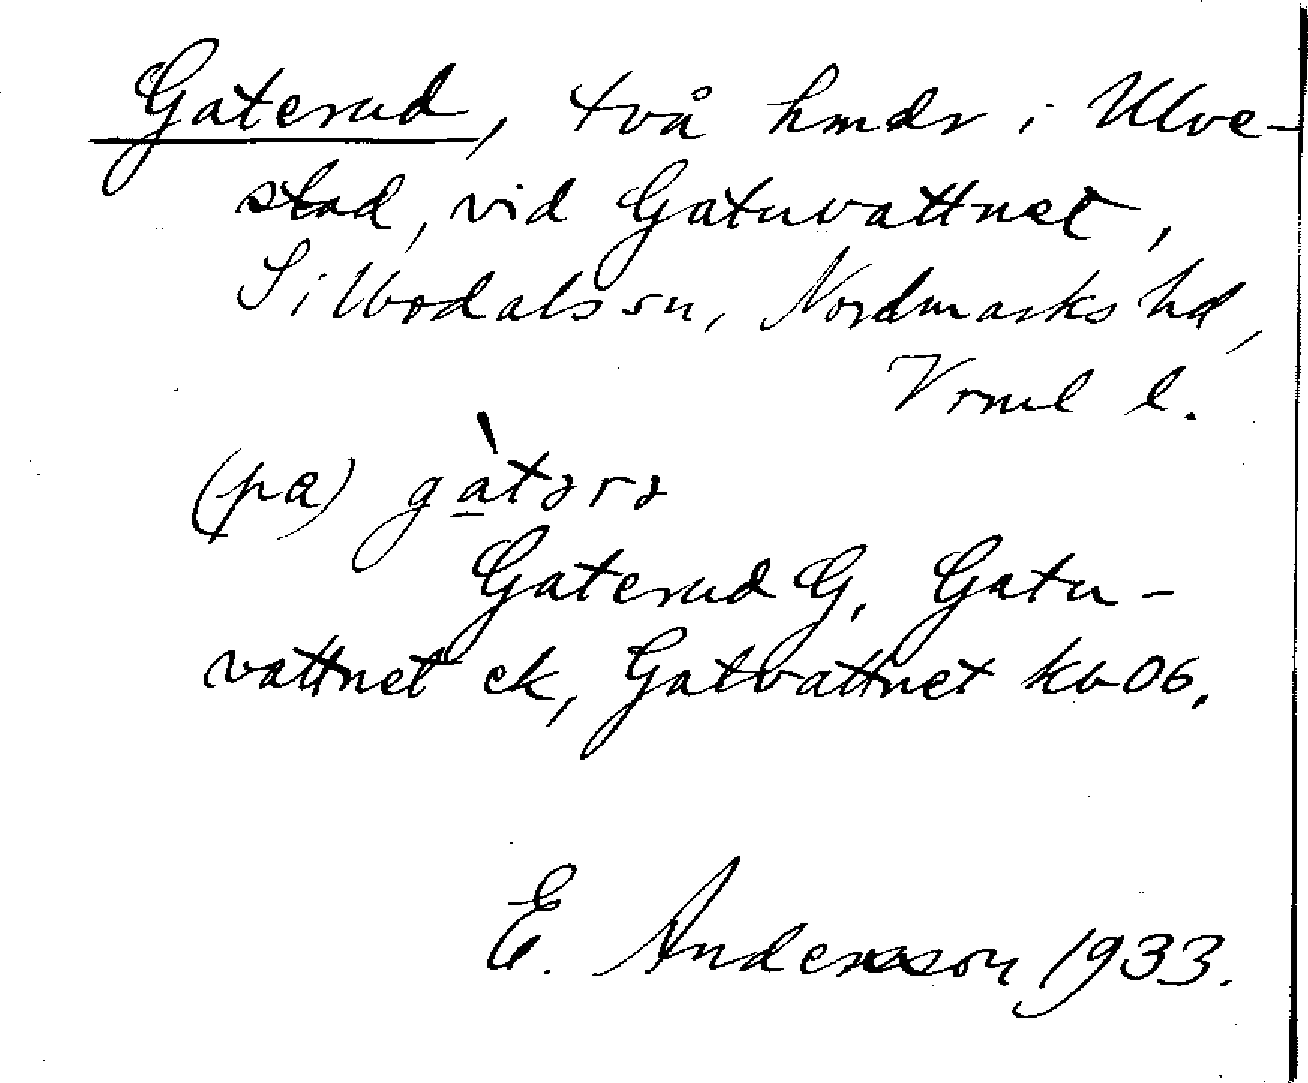 Gaterud, två hmdr i Ulve-
stad, vid Gatuvattnet,
Silbodals sn, Nordmarks hd,
Vrml l.
(pa) gàtərə
Gaterud G, Gatu-
vattnet ek, Gatvattnet kb 06.
E. Andersson 1933.